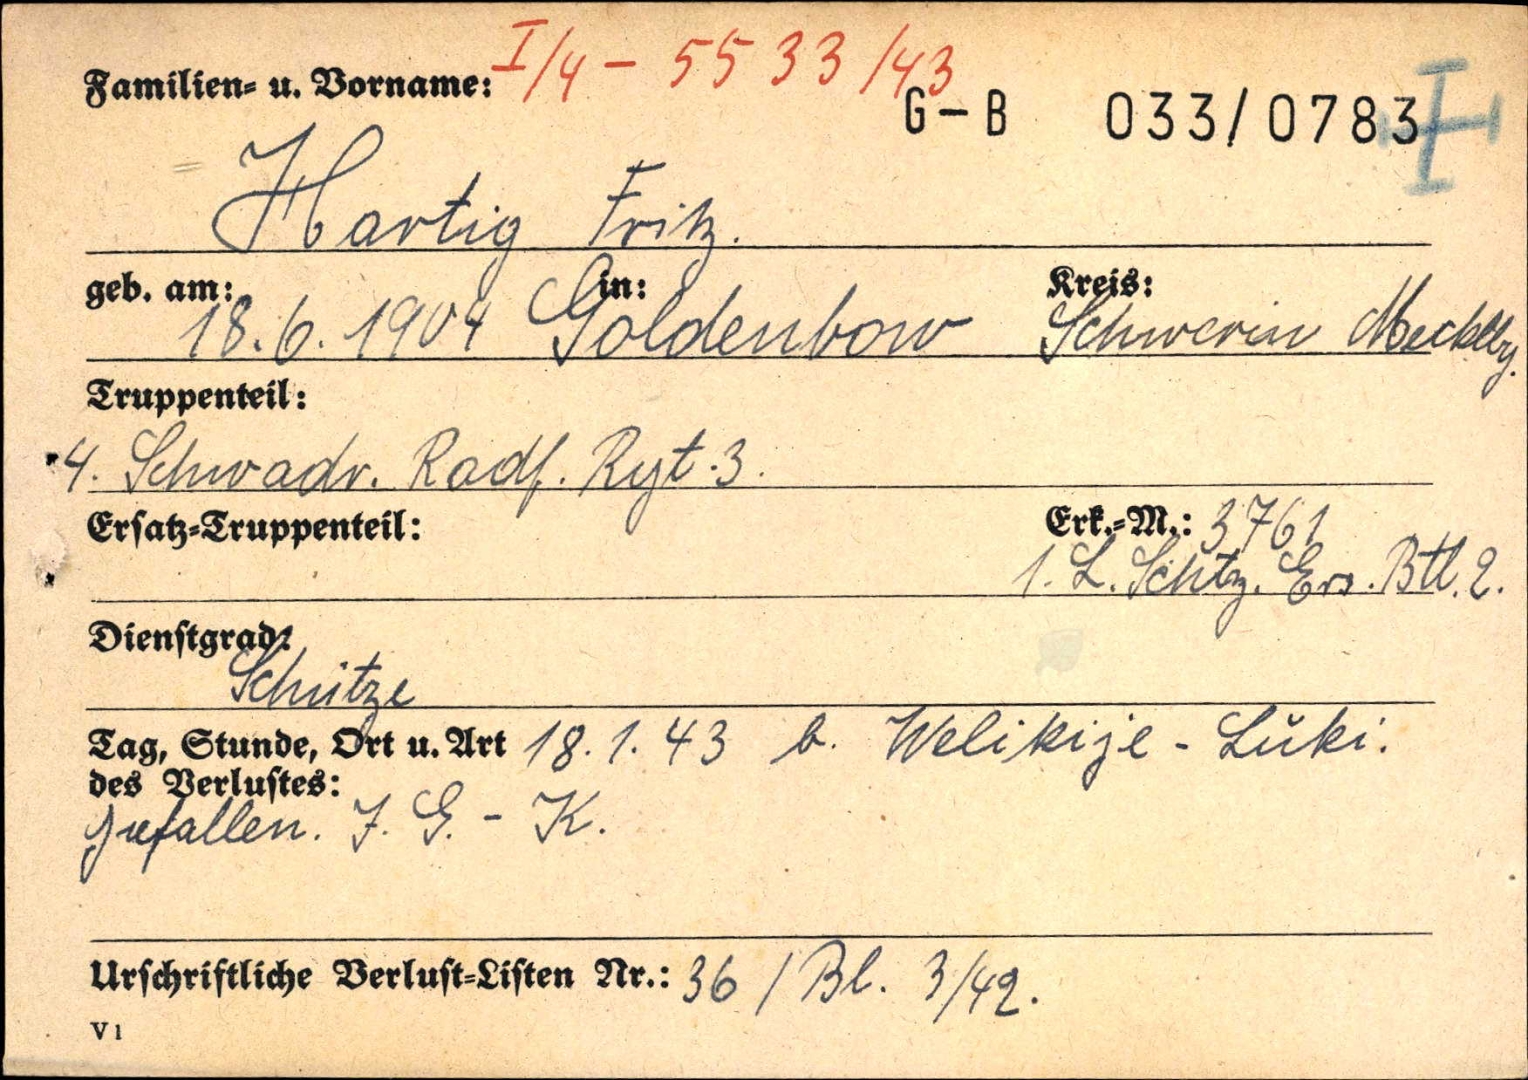 I/4 - 5533/43
Familien- u. Vorname:
G-B 033/0783
Hartig Fritz.
geb. am: in: Kreis:
18.6.1904 Goldenbow Schwerin Mecklbg.
Truppenteil:
4. Schwadr. Radf. Rgt. 3.
Ersatz-Truppenteil: Erk.-M.: 3761
1. L. Schtz. Ers. Btl. 2.
Dienstgrad:
Schütze
Tag, Stunde, Ort u. Art 18.1.43 b. Welikije-Luki.
des Verlustes:
gefallen. I. G. - K.
Urschriftliche Verlust-Listen Nr.: 36 / Bl. 3/42.
V1